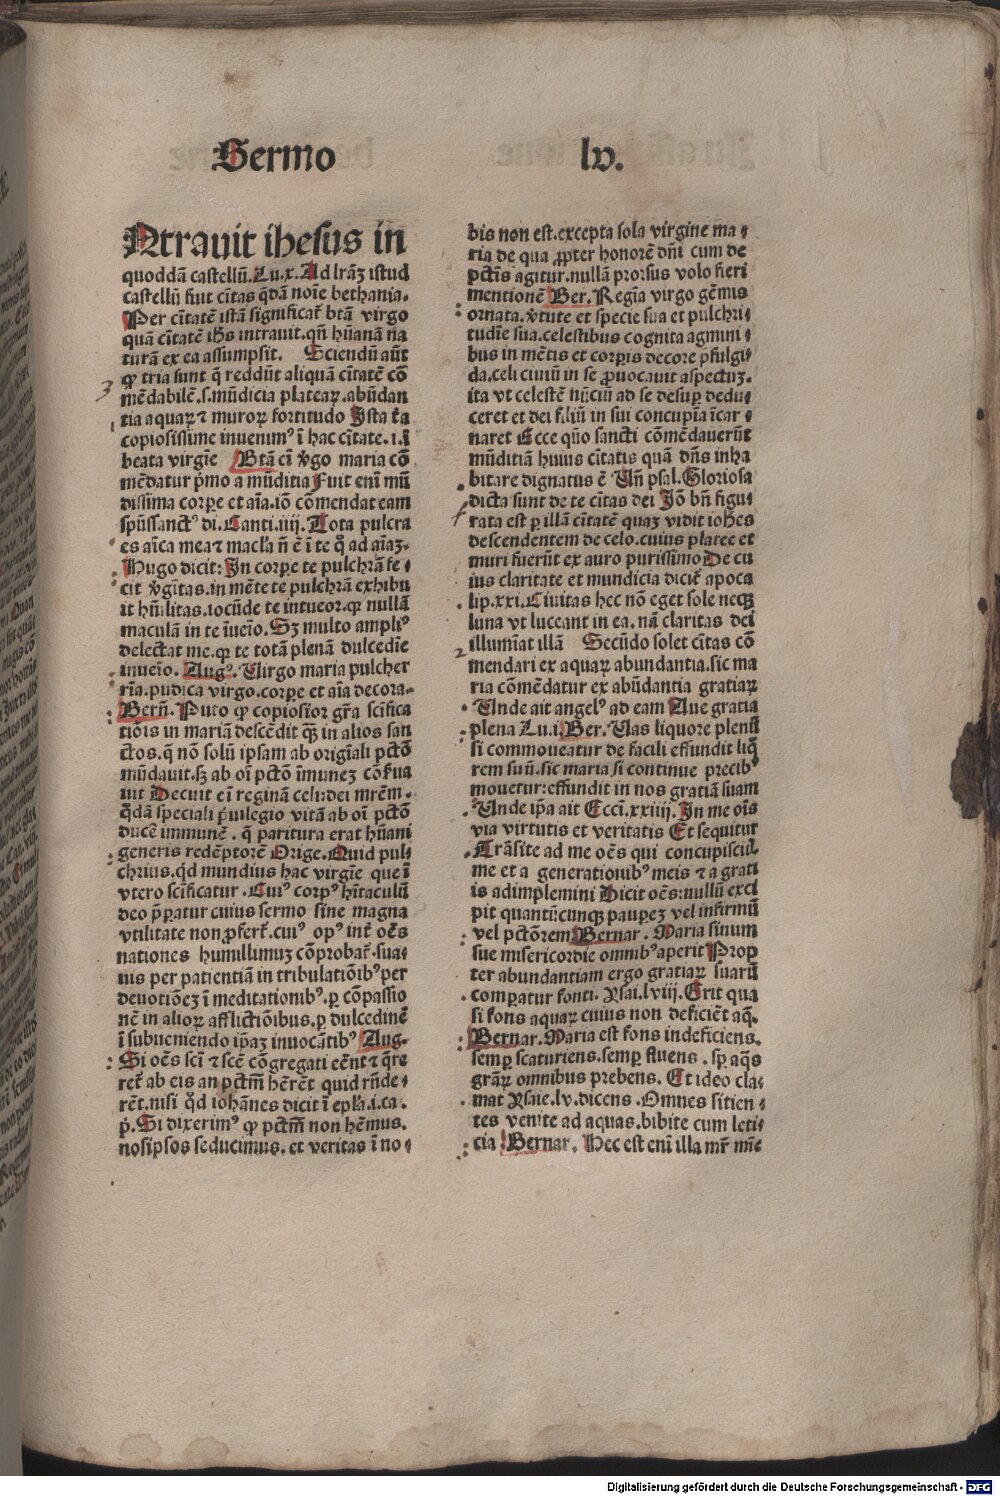 Sermo lv.
Ntrauit ihesus in
quoddā castellū. Lu.x. Ad lrāʒ istud
castellū fuit cītas q̄dā noīe bethania.
Per cītatē istā significat̄ btā virgo
quā cītatē ihs̄ intrauit. qn̄ hūanā na
turā ex ea assumpsit. Sciendū aūt
ꝙ tria sunt q̄ reddūt aliquā cītatē cō
mēdabilē. s. mūdicia plateaꝝ. abūdan
tia aquaꝝ ⁊ muroꝝ fortitudo Ista t̄a
copiosissime inuenimꝰ ī hac cītate. i. ī
beata virgīe Btā eī v̄go maria cō
mēdatur p̄mo a mūditia Fuit enī mū
dissima corꝑe et aīa. iō cōmendat eam
spūssanctꝰ di. Canti.iiij. Tota pulcra
es aīca mea ⁊ macl̄a n̄ ē ī te qͦ ad aīaʒ.
Hugo dicit: In corꝑe te pulchrā fe
cit v̄gītas. in mēte te pulchrā exhibu
it hūīlitas. iocūde te intueor. qꝛ nullā
maculā in te īueīo. Sʒ multo ampliꝰ
delectat me. qꝛ te totā plenā dulcedīe
inueīo. Augꝰ. Virgo maria pulcher
rīa. pudica virgo. corꝑe et aīa decora.
Bern̄. Puto ꝙ copiosīor gr̄a scīfica
tiōis in mariā descēdit qͣʒ in alios san
ctos. q̄ nō solū ipsam ab origīali pctō
mūdauit. sʒ ab oī pctō īmuneʒ cōẜua
uit Decuit eī reginā celi: dei mr̄em.
q̄dā speciali p̄uilegio vitā ab oī pctō
ducē immunē. q̄ paritura erat hūani
generis redēptorē Orige. Quid pul⸗
chrius. qͥd mundius hac virgīe que ī
vtero scīficatur. Cuiꝰ corpꝰ hītaculū
deo p̄paratur cuius sermo sine magna
vtilitate non ꝓfert̄. cuiꝰ opꝰ int̄ oēs
nationes humillimuʒ cōprobat̄. sua⸗
uis per patientiā in tribulatiōibꝰ per
deuotiōeʒ ī meditationibꝰ. ꝑ cōpassio
nē in alioꝝ afflictiōibus. ꝑ dulcedinē
ī subueniendo ip̄aʒ inuocātibꝰ Aug.
Si oēs scī ⁊ scē cōgregati eēnt ⁊ q̄re
ret̄ ab eis an pctm̄ hērēt quid rn̄de⸗
rēt. nisi qͦd iohānes dicit ī epl̄a. i. ca.
p̄. Si dixerimꝰ ꝙ pctm̄ non hēmus.
nosipsos seducimus. et veritas ī no⸗
bis non est. excepta sola virgine ma⸗
ria de qua ꝓpter honorē dn̄i cum de
pctīs agitur. nullā prorsus volo fieri
mentionē Ber. Regīa virgo gēmis
ornata. v̄tute et specie sua et pulchri⸗
tudīe sua. celestibus cognita agmini⸗
bus in mētis et corpis decore p̄fulgi⸗
da. celi ciuiū in se ꝓuocauit aspectuʒ.
ita vt celestē nūciū ad se desuꝑ dedu⸗
ceret et dei filiū in sui concupīa īcar⸗
naret Ecce qūo sancti cōmēdauerūt
mūditiā huius cītatis quā dn̄s inha
bitare dignatus ē Vn̄ psal. Gloriosa
dicta sunt de te cītas dei Iō bn̄ figu⸗
rata est ꝑ illā cītatē quaʒ vidit iohēs
descendentem de celo. cuius platee et
muri fuerūt ex auro purissimo De cu
ius claritate et mundicia dicit̄ apoca
lip.xxi. Ciuitas hec nō eget sole neqʒ
luna vt luceant in ea. nā claritas dei
illumīat illā Secūdo solet cītas cō
mendari ex aquaꝝ abundantia. sic ma
ria cōmēdatur ex abūdantia gratiaꝝ
Vnde ait angelꝰ ad eam Aue gratia
plena Lu.i. Ber. Vas liquore plenū
si commoueatur de facili effundit liq̄
rem suū. sic maria si continue precibꝰ
mouetur: effundit in nos gratiā suam
Vnde ip̄a ait Eccī.xxiiij. In me oīs
via virtutis et veritatis Et sequitur
Trāsite ad me oēs qui concupiscit̄
me et a generationibꝰ meis ⁊ a grati
is adimplemini Dicit oēs: nullū exci
pit quantūcunqʒ pauꝑeʒ vel infirmū
vel pctōrem Bernar. Maria sinum
sue misericordie omnibꝰ aperit Prop
ter abundantiam ergo gratiaꝝ suarū
comꝑatur fonti. Ysai.lviij. Erit qua
si fons aquaꝝ cuius non deficiēt aq̄.
Bernar. Maria est fons indeficiens.
semꝑ scaturiens. semꝑ fluens. sp̄ aq̄s
grāꝝ omnibus prebens. Et ideo cla⸗
mat Ysaie.lv. dicens. Omnes sitien⸗
tes venite ad aquas. bibite cum leti⸗
cia Bernar. Hec est enī illa mr̄ mīe
Digitalisierung gefördert durch die Deutsche Forschungsgemeinschaft - DFG